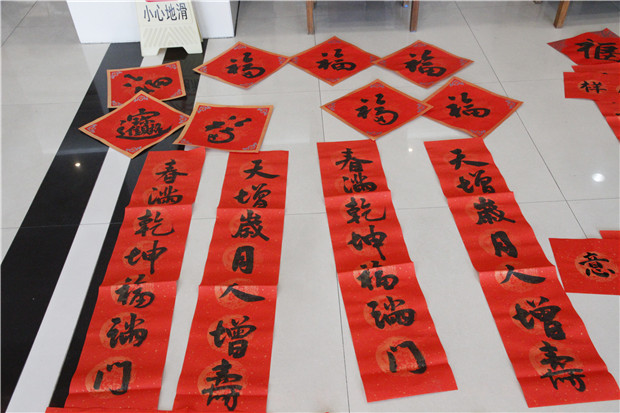 小心地滑
福
福
福
福
福
春满乾坤福满门
天增歲月人增寿
春满乾坤福满门
天增歲月人增寿
样
意